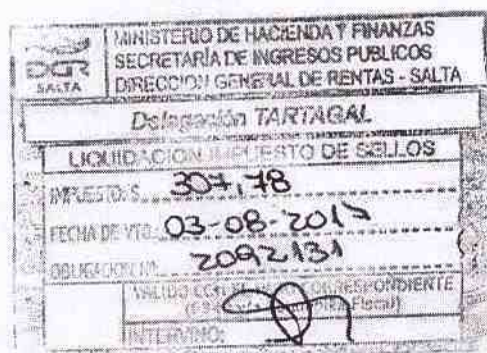 DGR
SALTA
MINISTERIO DE HACIENDA Y FINANZAS
SECRETARÍA DE INGRESOS PUBLICOS
DIRECCION GENERAL DE RENTAS - SALTA
Delegación TARTAGAL
LIQUIDACION IMPUESTO DE SELLOS
IMPUESTO: $ 307,78
FECHA DE VTO. 03-08-2017
OBLIGACION Nº 2092131
VALIDO CON CORRESPONDIENTE
Fiscal)
INTERVINO: